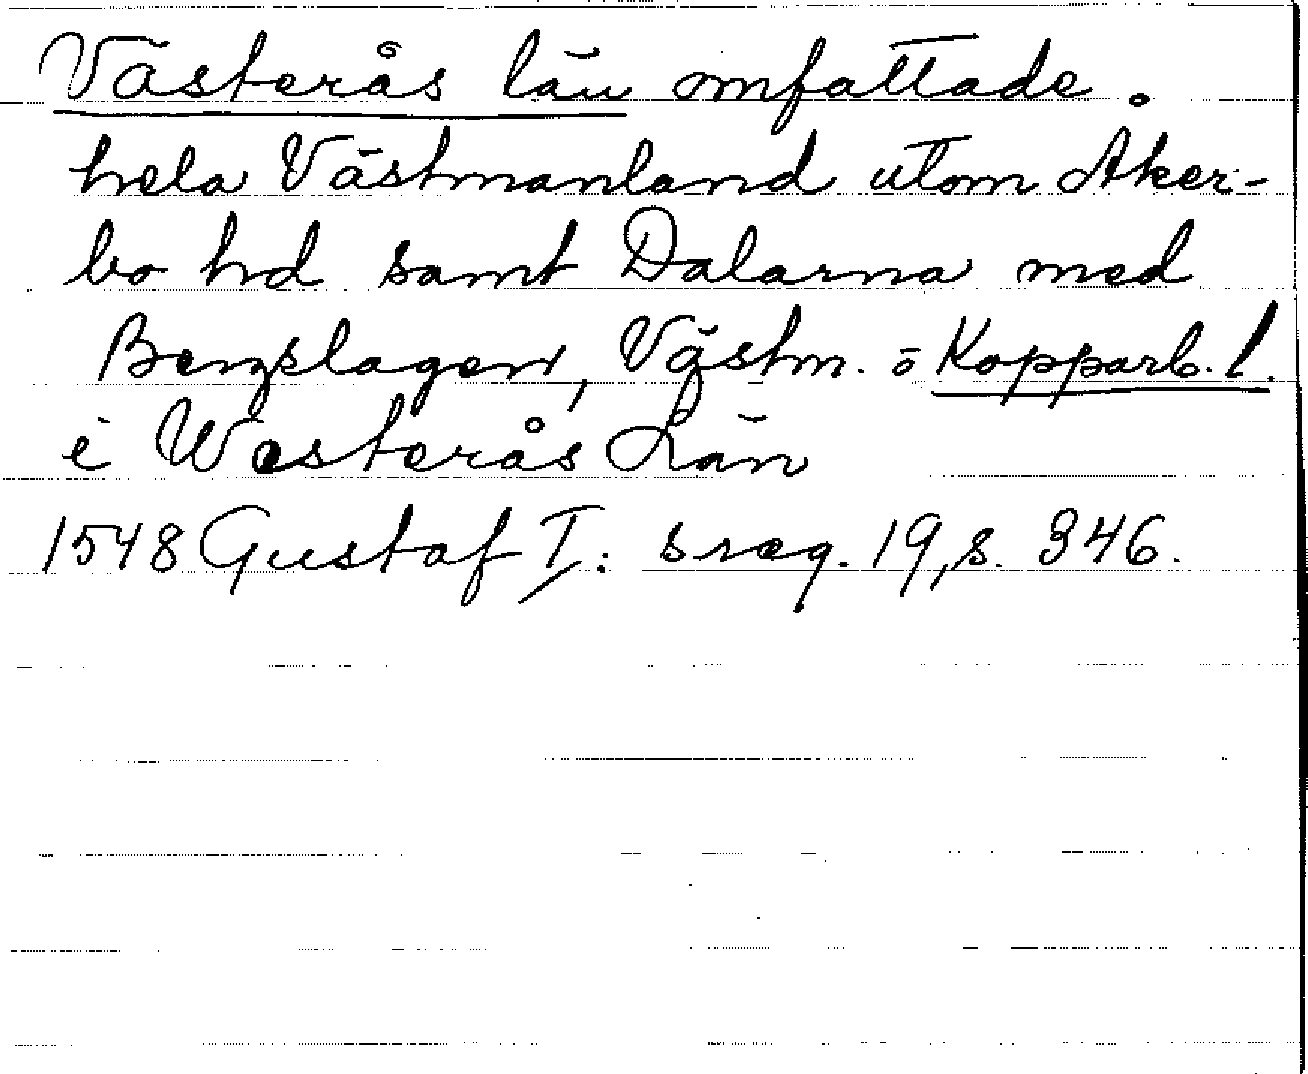 Västerås län omfattade.
hela Västmanland utom Åker-
bo hd samt Dalarna med
Bergslagen, Västm. o Kopparb. l.
i Westerås Län
1548 Gustaf I: s reg. 19, s. 346.